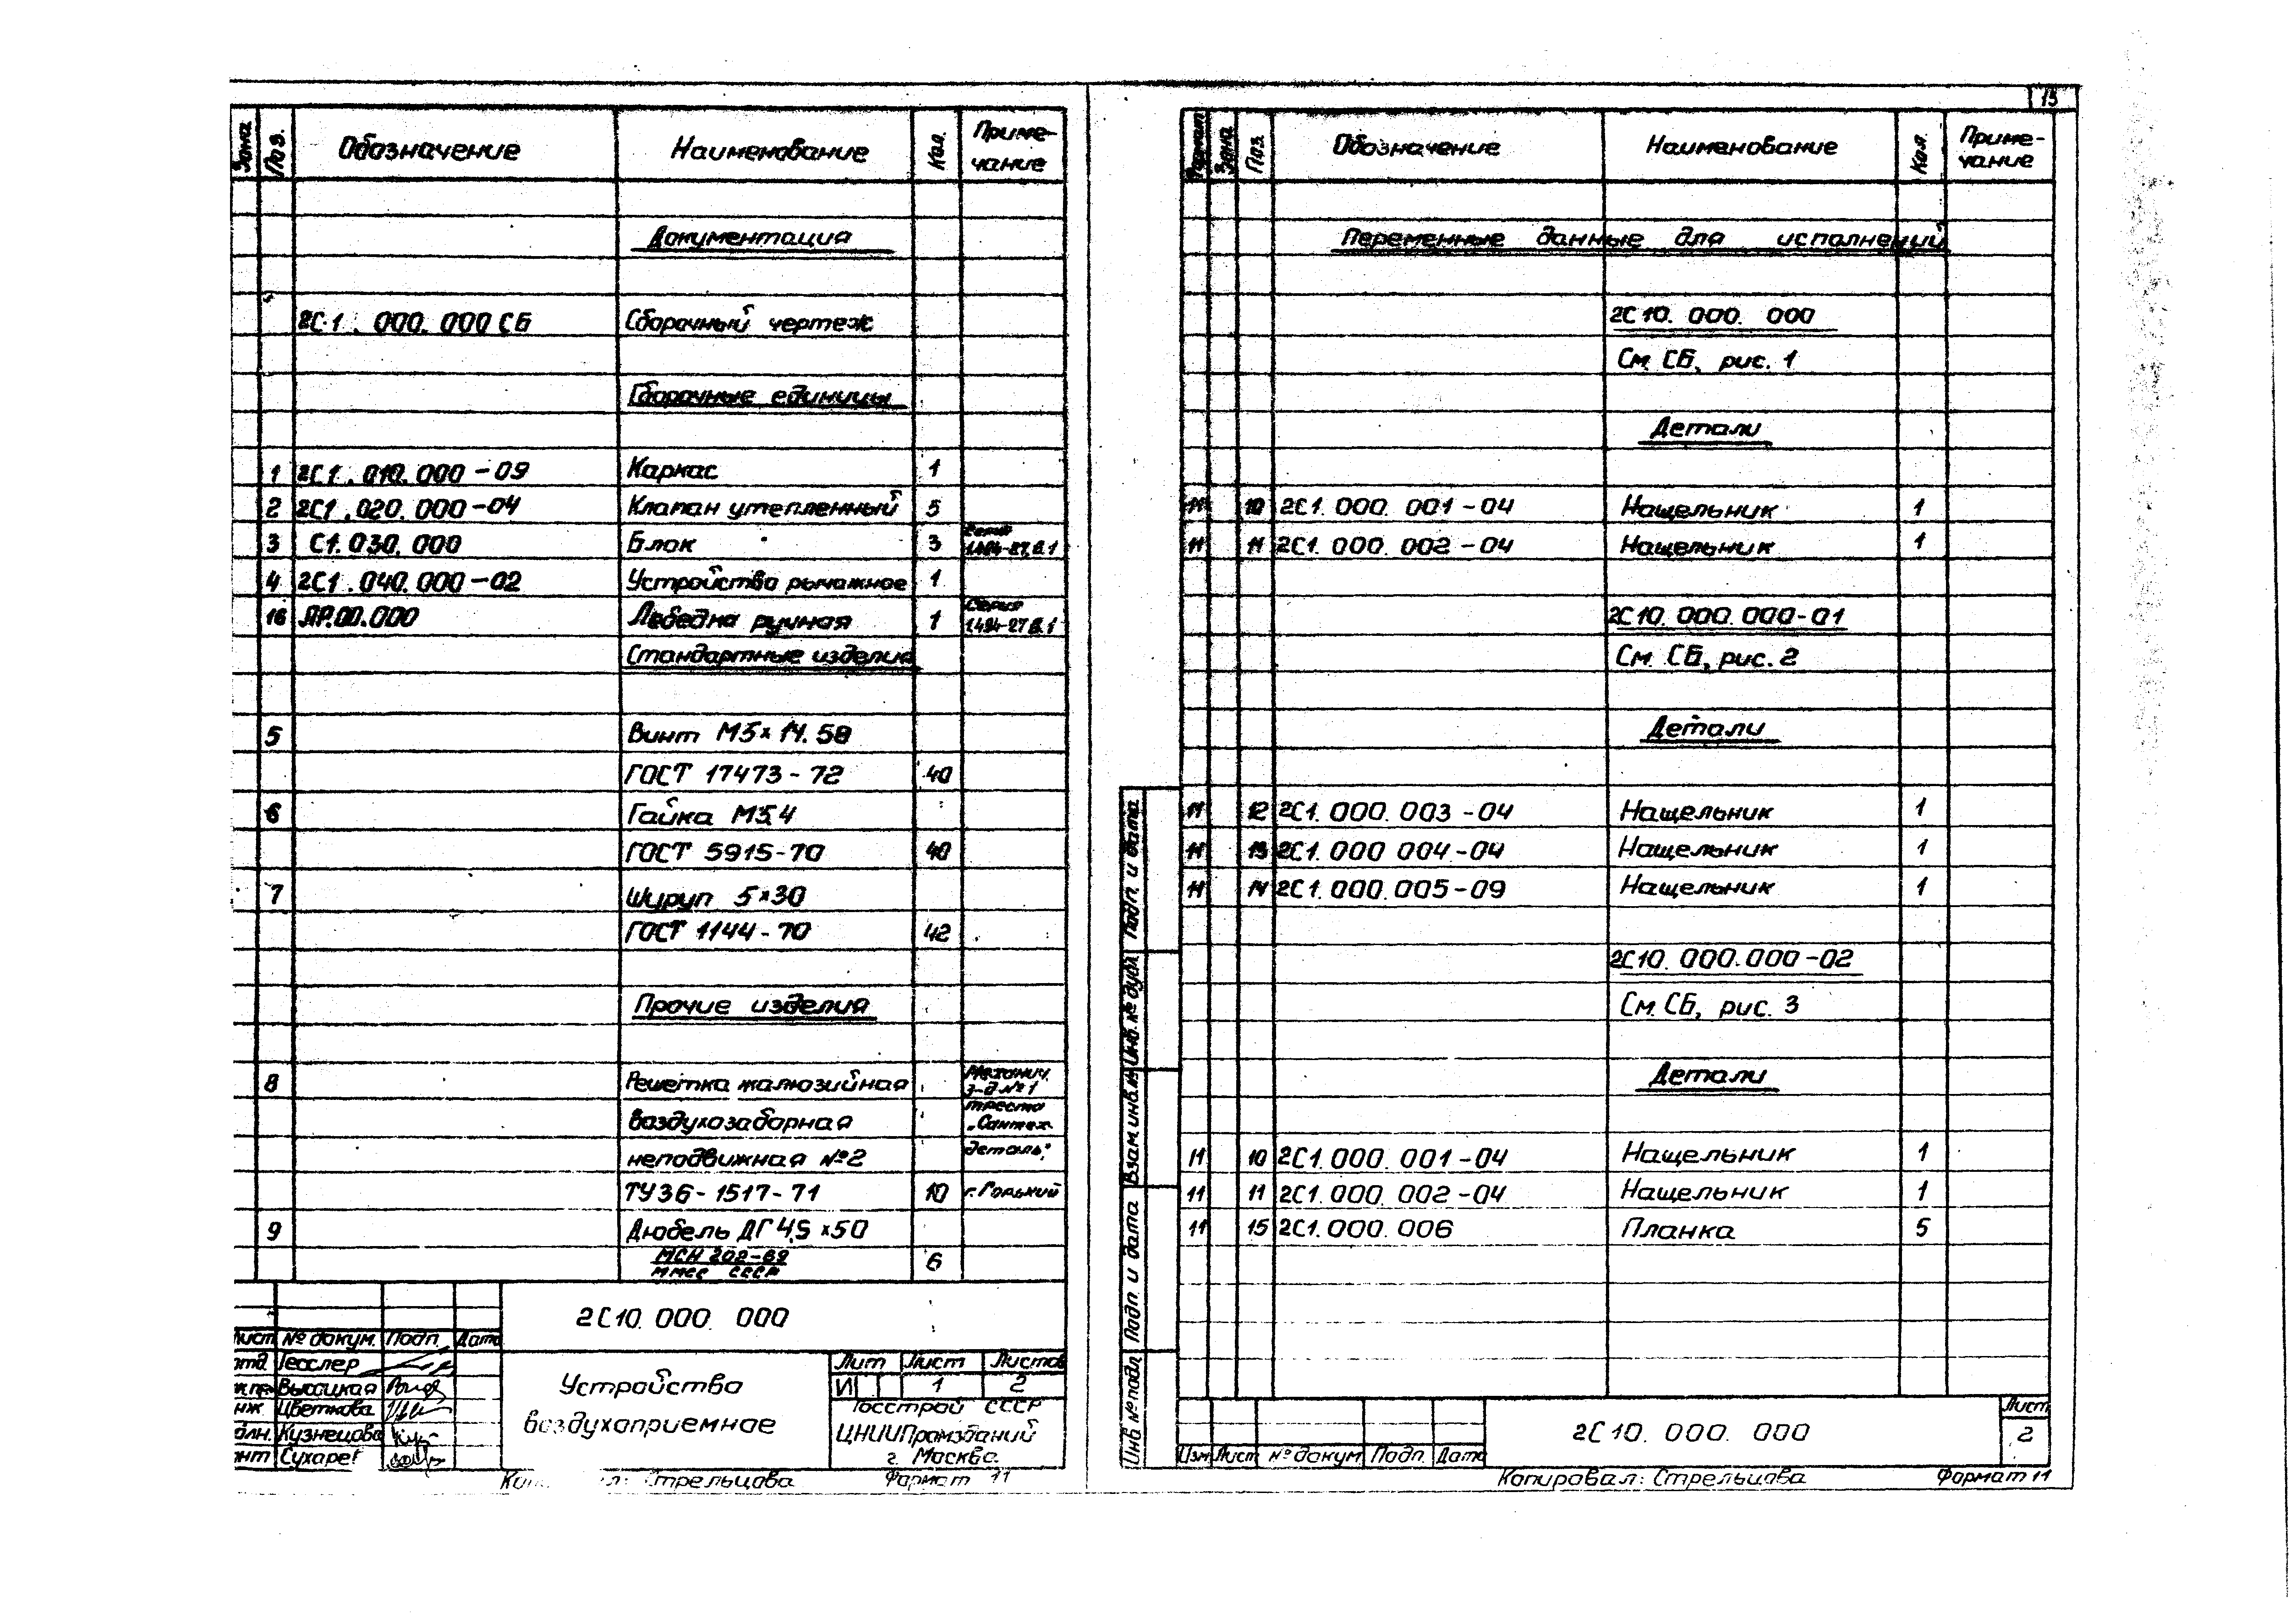 Зона Поз. Обозначение Наименование Кол. Приме-
чание
Документация
2С1. 000. 000 СБ Сборочный чертеж
Сборочные единицы
1 2С1. 010. 000 - 09 Каркас 1
2 2С1. 020. 000 - 04 Клапан утепленный 5
3 С1. 030. 000 Блок 3 1.494-27, в.1
4 2С1. 040. 000 - 02 Устройство рычажное 1
16 ЛР.00.000 Лебедка ручная 1 Серия 1.494-27, в.1
Стандартные изделия
5 Винт М5 х 14. 58
ГОСТ 17473 - 72 40
6 Гайка М5.4
ГОСТ 5915-70 40
7 Шуруп 5 х 30
ГОСТ 1144 - 70 42
Прочие изделия
8 Решетка жалюзийная Механич. з-д №1
воздухозаборная треста „Сантех-
неподвижная №2 деталь",
ТУ 36 - 1517 - 71 10 г. Горький
9 Дюбель ДГ 4,5 х 50
МСН 202-69
ММСС СССР 6
2С10. 000. 000
Лист № докум. Подп. Дата
Гесслер
Высоцкая
Цветкова
Кузнецова
Сухарев
Устройство
воздухоприемное
Лит Лист Листов
И 1 2
Госстрой СССР
ЦНИИПромзданий
г. Москва.
л: Стрельцова Формат 11
13
Формат Зона Поз. Обозначение Наименование Кол. Приме-
чание
Переменные данные для исполнений
2С10. 000. 000
См. СБ, рис. 1
Детали
11 10 2С1. 000. 001 - 04 Нащельник 1
11 11 2С1. 000. 002 - 04 Нащельник 1
2С10. 000. 000 - 01
См. СБ, рис. 2
Детали
11 12 2С1. 000. 003 - 04 Нащельник 1
11 13 2С1. 000 004 - 04 Нащельник 1
11 14 2С1. 000. 005 - 09 Нащельник 1
2С10. 000. 000 - 02
См. СБ, рис. 3
Детали
11 10 2С1. 000. 001 - 04 Нащельник 1
11 11 2С1. 000. 002 - 04 Нащельник 1
11 15 2С1. 000. 006 Планка 5
Инв № подл Подп. и дата Взам инв. № Инв. № дубл Подп. и дата
Изм Лист № докум Подп. Дата
2С10. 000. 000
Лист
2
Копировал: Стрельцова Формат 11